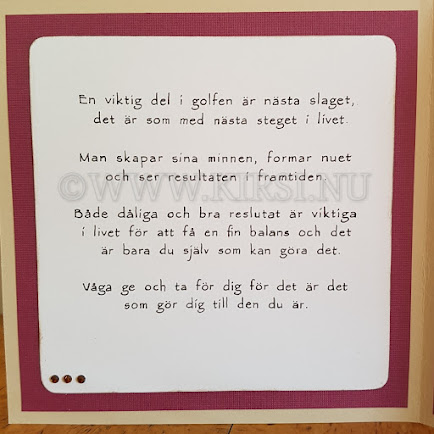 En viktig del i golfen är nästa slaget,
det är som med nästa steget i livet.
Man skapar sina minnen, formar nuet
och ser resultaten i framtiden.
©WWW.KIKSI.NU
Både dåliga och bra reslutat är viktiga
i livet för att få en fin balans och det
är bara du själv som kan göra det.
Våga ge och ta för dig för det är det
som gör dig till den du är.